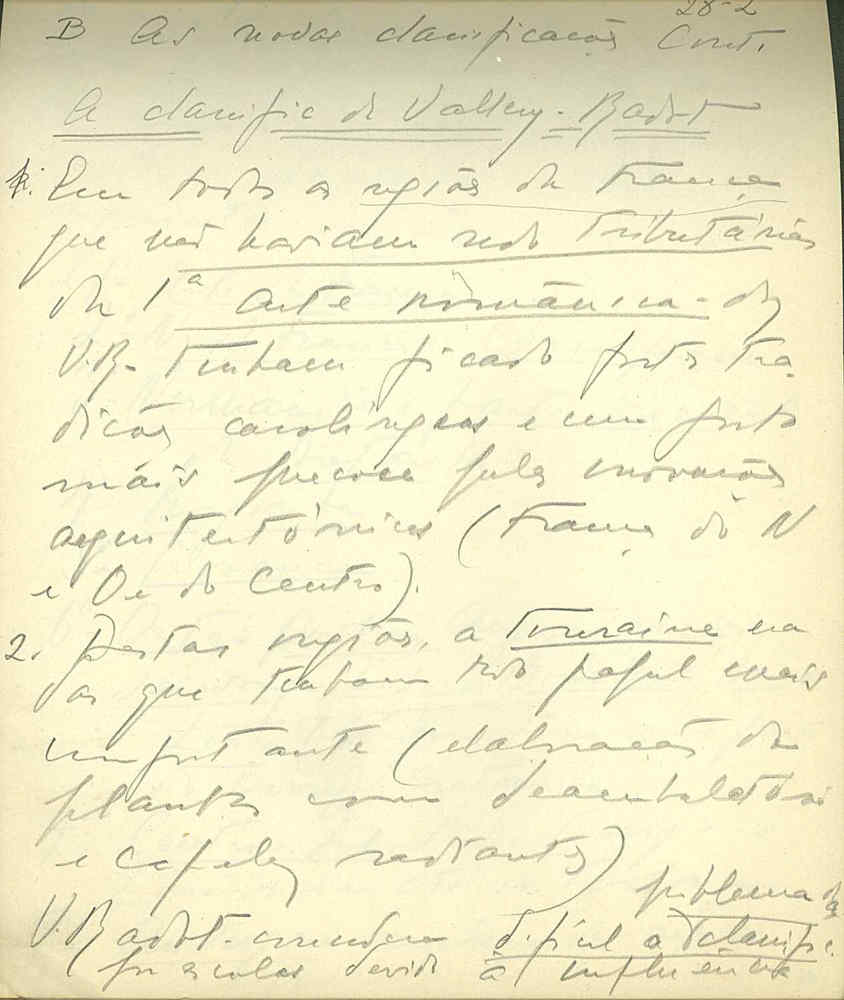 28-2
B As novas classificações Cont.
A classific de Vallery-Badot
1. Em todas as regiões da França
que não haviam sido tributárias
da 1ª arte românica - diz
V.R. tinham ficado fortes tra
dições carolíngeas e um gosto
mais precoce pelas inovações
arquitectónicas (França do N
e O e do Centro).
2. Destas regiões, a Touraine era
das que tinham tido papel mais
importante (elaboração da
planta com deambulatório
e capelas radiantes)
problema da
V. Radot - considera difícil a classific.
por escolas devido à influência